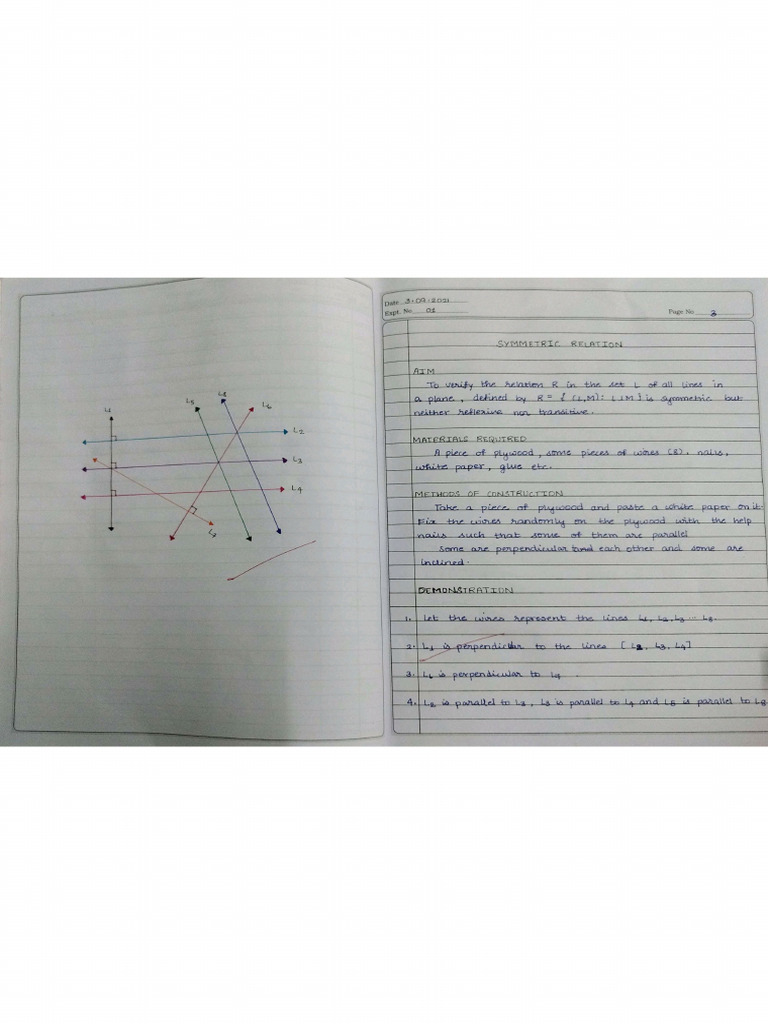 L1
L5
L8
L6
L2
L3
L4
L7
Date 3.09.2021
Expt. No 01
Page No 3
SYMMETRIC RELATION
AIM
To verify the relation R in the set L of all lines in
a plane, defined by R = { (L,M): L⊥M } is symmetric but
neither reflexive nor transitive.
MATERIALS REQUIRED
A piece of plywood, some pieces of wires (8), nails,
white paper, glue etc.
METHODS OF CONSTRUCTION
Take a piece of plywood and paste a white paper on it.
Fix the wires randomly on the plywood with the help
nails such that some of them are parallel
Some are perpendicular each other and some are
inclined.
DEMONSTRATION
1. Let the wires represent the lines L1, L2, L3 ... L8.
2. L1 is perpendicular to the lines [ L2, L3, L4]
3. L6 is perpendicular to L7 .
4. L2 is parallel to L3, L3 is parallel to L4 and L5 is parallel to L8